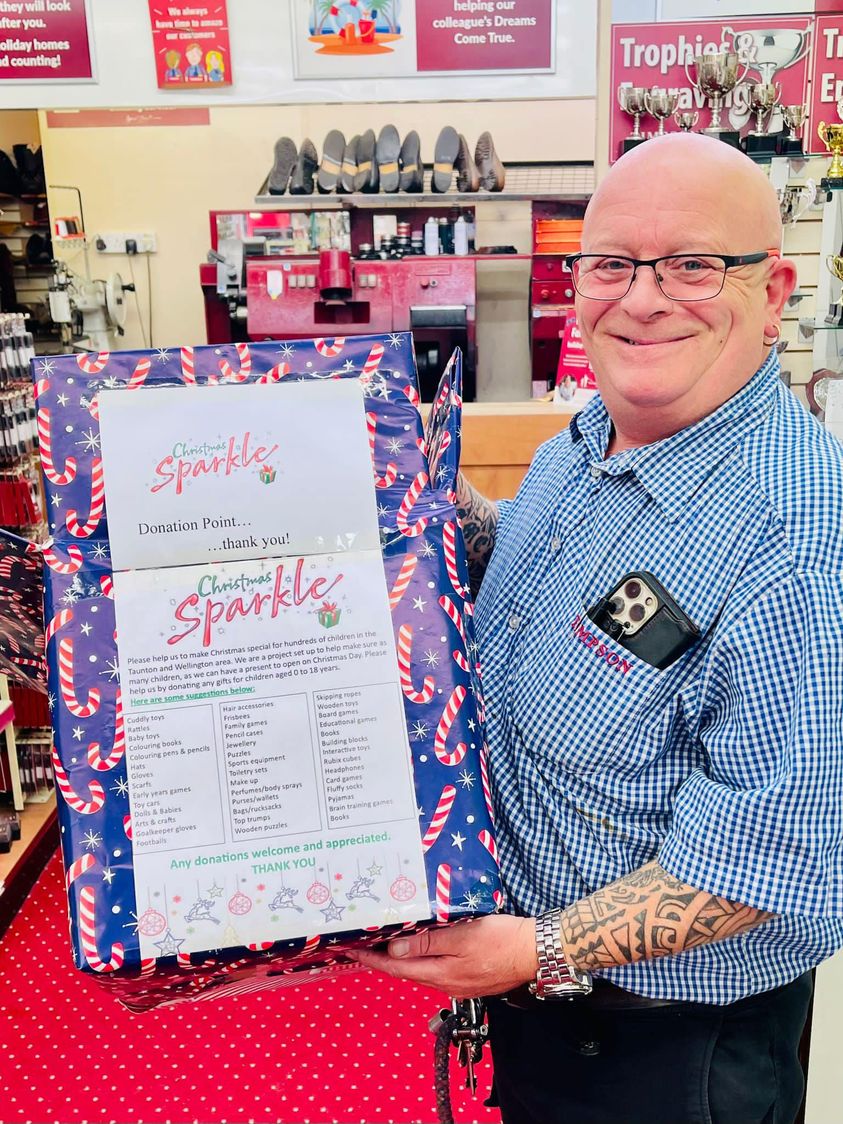 they will look
after you.
oliday homes
nd counting!
We always
have time to amaze
our customers
helping our
colleague's Dreams
Come True.
Trophies &
Engraving
Christmas
Sparkle
Donation Point...
...thank you!
Christmas
Sparkle
Please help us to make Christmas special for hundreds of children in the
Taunton and Wellington area. We are a project set up to help make sure as
many children, as we can have a present to open on Christmas Day. Please
help us by donating any gifts for children aged 0 to 18 years.
Here are some suggestions below:
Cuddly toys
Rattles
Baby toys
Colouring books
Colouring pens & pencils
Hats
Gloves
Scarfs
Early years games
Toy cars
Dolls & Babies
Arts & crafts
Goalkeeper gloves
Footballs
Hair accessories
Frisbees
Family games
Pencil cases
Jewellery
Puzzles
Sports equipment
Toiletry sets
Make up
Perfumes/body sprays
Purses/wallets
Bags/rucksacks
Top trumps
Wooden puzzles
Skipping ropes
Wooden toys
Board games
Educational games
Books
Building blocks
Interactive toys
Rubix cubes
Headphones
Card games
Fluffy socks
Pyjamas
Brain training games
Books
Any donations welcome and appreciated.
THANK YOU
IMPSON